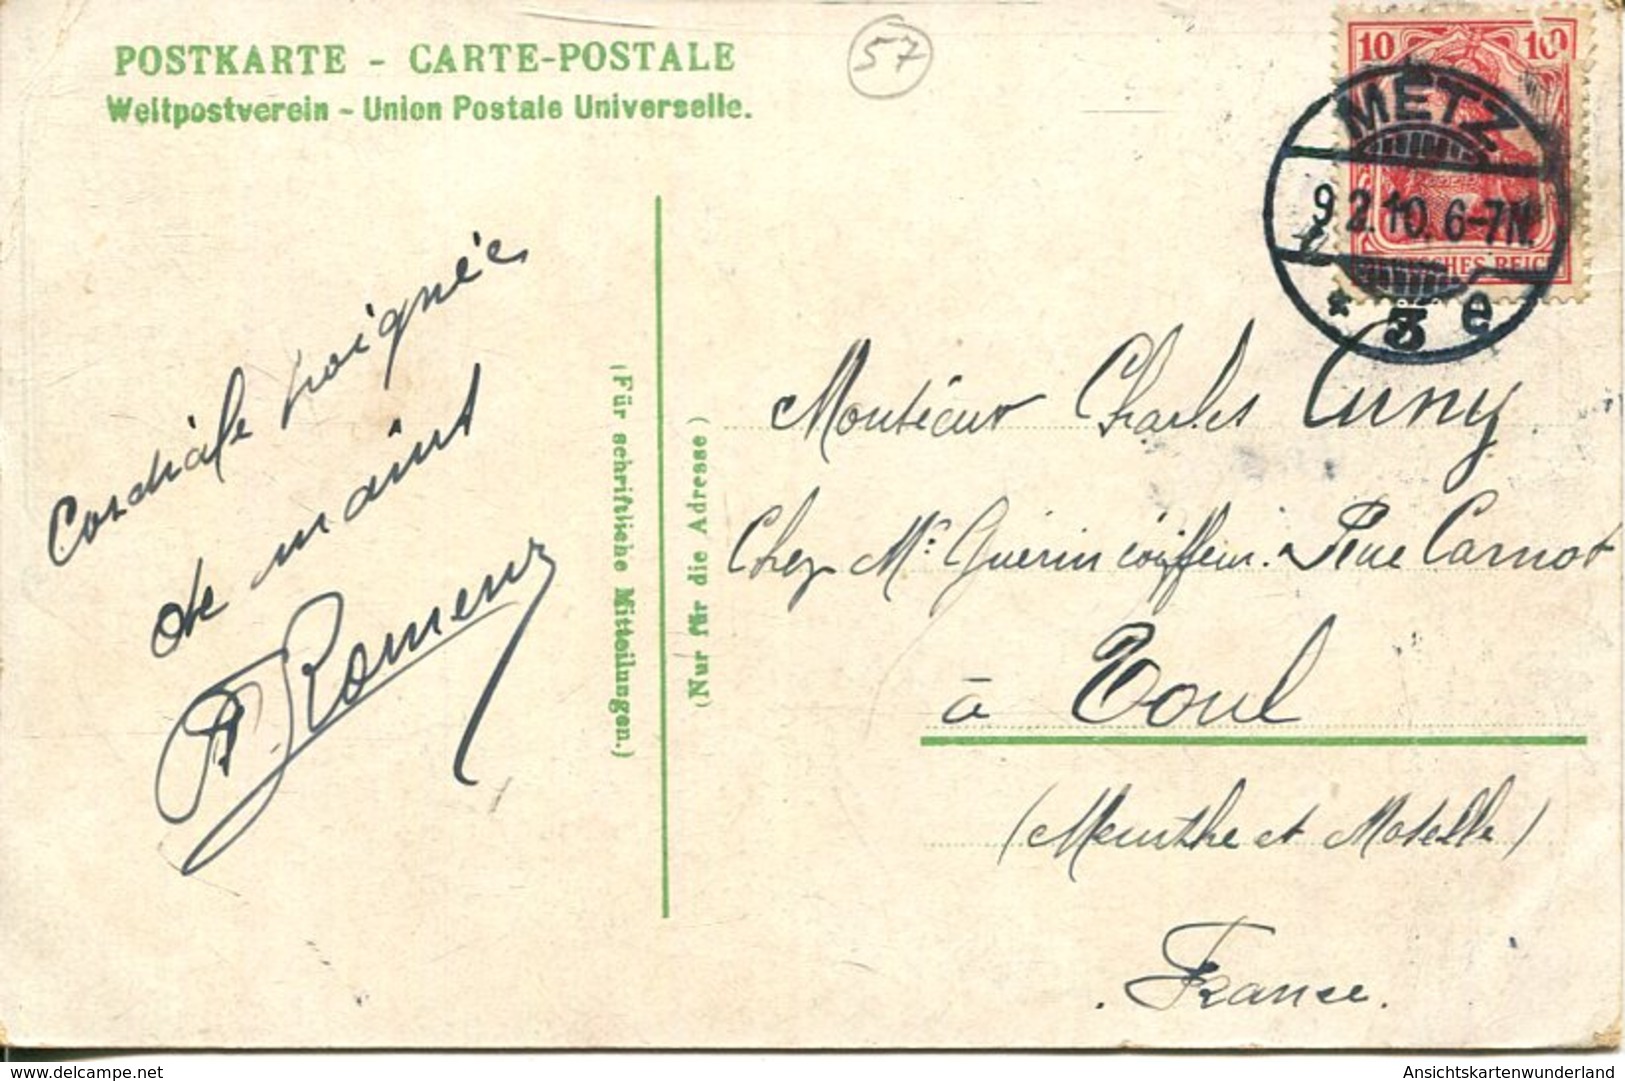 POSTKARTE - CARTE-POSTALE
Weltpostverein - Union Postale Universelle.
57
10 10
METZ
9.2.10. 6-7N.
DEUTSCHES REICH
* 3 e
Cordiale poignée
de maint
(Für schriftliche Mitteilungen.)
(Nur für die Adresse)
Monsieur Charles Cuny
Chez Mr Guerin coiffeur. Rue Carnot
à Toul
(Meurthe et Moselle)
France.
AnsichtsKartenwunderland